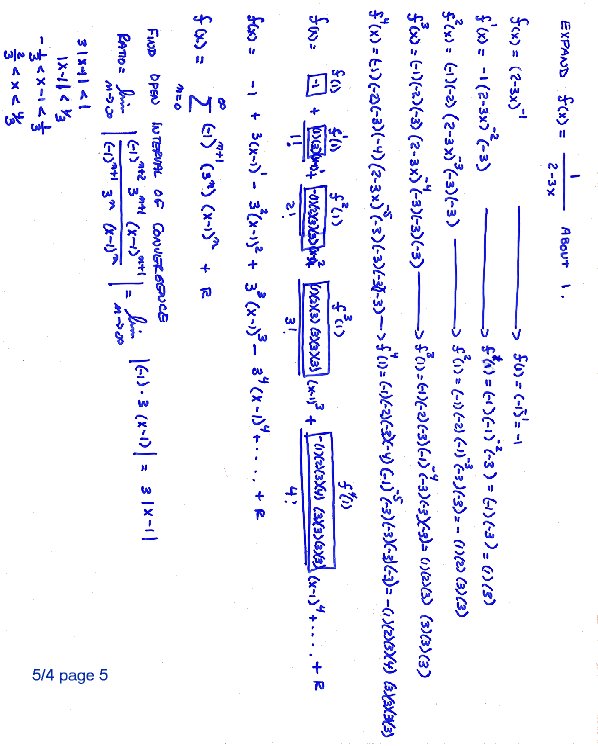 EXPAND f(x) = 1/(2-3x) ABOUT 1.
f(x) = (2-3x)^-1 ———> f(1) = (-1)^-1 = -1
f'(x) = -1(2-3x)^-2(-3) ———> f'(1) = (-1)(-1)^-2(-3) = (-1)(-3) = (1)(3)
f^2(x) = (-1)(-2)(2-3x)^-3(-3)(-3) ———> f^2(1) = (-1)(-2)(-1)^-3(-3)(-3) = -(1)(2)(3)(3)
f^3(x) = (-1)(-2)(-3)(2-3x)^-4(-3)(-3)(-3) ———> f^3(1) = (-1)(-2)(-3)(-1)^-4(-3)(-3)(-3) = (1)(2)(3)(3)(3)(3)
f^4(x) = (-1)(-2)(-3)(-4)(2-3x)^-5(-3)(-3)(-3)(-3) —> f^4(1) = (-1)(-2)(-3)(-4)(-1)^-5(-3)(-3)(-3)(-3) = -(1)(2)(3)(4)(3)(3)(3)(3)
f(1) f'(1) f^2(1) f^3(1) f^4(1)
f(x) = -1 + (1)(3)(x-1)^1/1! + -(1)(2)(3)(3)(x-1)^2/2! + (1)(2)(3)(3)(3)(3)/3! (x-1)^3 + -(1)(2)(3)(4)(3)(3)(3)(3)/4! (x-1)^4 + ..... + R
f(x) = -1 + 3(x-1)^1 - 3^2(x-1)^2 + 3^3(x-1)^3 - 3^4(x-1)^4 + ..... + R
f(x) = ∑ n=0 ∞ (-1)^n+1 (3^n) (x-1)^n + R
FIND OPEN INTERVAL OF CONVERGENCE
RATIO = lim n->∞ | (-1)^n+2 3^n+1 (x-1)^n+1 / (-1)^n+1 3^n (x-1)^n | = lim n->∞ | (-1)·3(x-1) | = 3|x-1|
3|x-1| < 1
|x-1| < 1/3
-1/3 < x-1 < 1/3
2/3 < x < 4/3
5/4 page 5